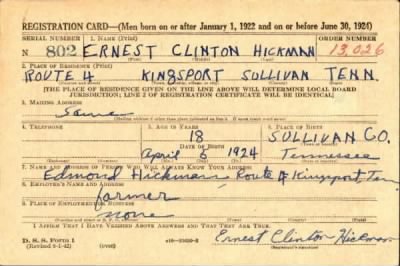 REGISTRATION CARD—(Men born on or after January 1, 1922 and on or before June 30, 1924)
SERIAL NUMBER 1. NAME (Print) ORDER NUMBER
N 802 ERNEST CLINTON HICKMAN 13,026
(First) (Middle) (Last)
2. PLACE OF RESIDENCE (Print)
ROUTE 4 KINGSPORT SULLIVAN TENN.
(Number and street) (Town, township, village, or city) (County) (State)
[THE PLACE OF RESIDENCE GIVEN ON THE LINE ABOVE WILL DETERMINE LOCAL BOARD
JURISDICTION; LINE 2 OF REGISTRATION CERTIFICATE WILL BE IDENTICAL]
3. MAILING ADDRESS
Same
4. TELEPHONE 5. AGE IN YEARS 6. PLACE OF BIRTH
18 SULLIVAN CO.
DATE OF BIRTH
April 6 1924 Tennessee
7. NAME AND ADDRESS OF PERSON WHO WILL ALWAYS KNOW YOUR ADDRESS
Edmond Hickman Route 4 Kingsport Ten
8. EMPLOYER'S NAME AND ADDRESS
farmer
9. PLACE OF EMPLOYMENT OR BUSINESS
none
I AFFIRM THAT I HAVE VERIFIED ABOVE ANSWERS AND THAT THEY ARE TRUE.
D. S. S. Form 1
(Revised 9-1-42)
Ernest Clinton Hickman